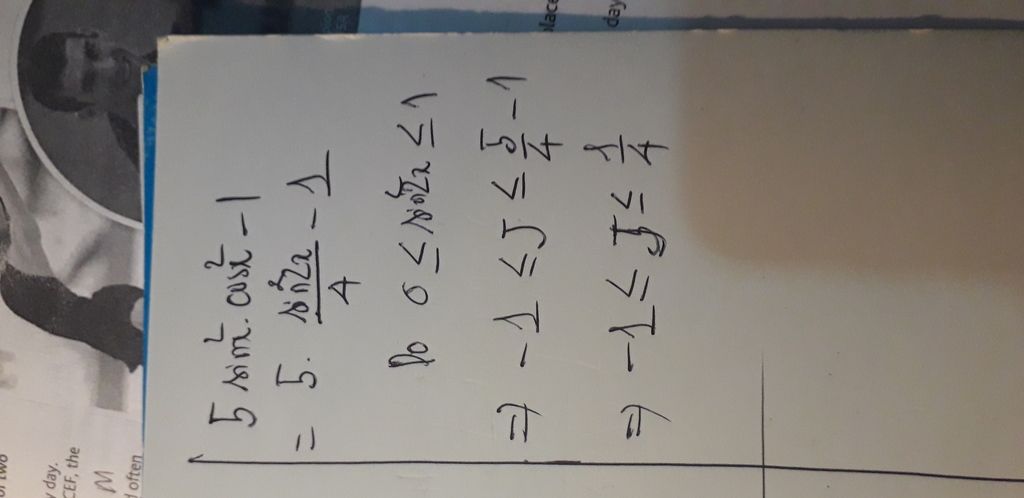 5 sin²x. cos²x - 1
= 5. sin²2x/4 - 1
Do 0 ≤ sin²2x ≤ 1
⇒ -1 ≤ J ≤ 5/4 - 1
⇒ -1 ≤ J ≤ 1/4
y day.
CEF, the
M
d often
lace
day